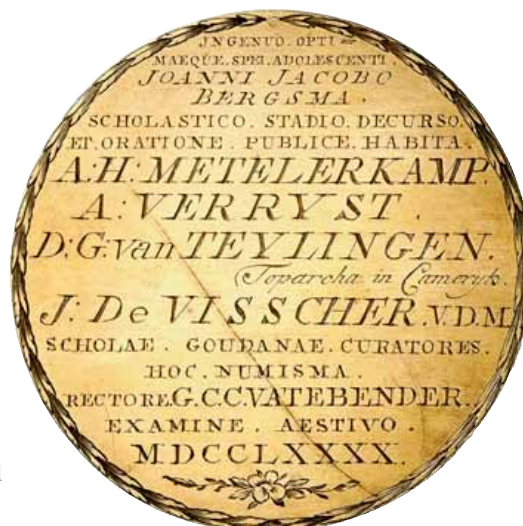 JNGENUO. OPTI=
MAEQUE. SPEI. ADOLESCENTI.
JOANNI JACOBO
BERGSMA.
SCHOLASTICO. STADIO. DECURSO.
ET. ORATIONE. PUBLICE. HABITA.
A: H: METELERKAMP.
A: VERRYST.
D: G: van TEYLINGEN.
(Toparcha in Cameryk.
J: De VISSCHER. V.D.M.
SCHOLAE. GOUDANAE. CURATORES.
HOC. NUMISMA.
RECTORE. G.C.C. VATEBENDER.
EXAMINE. AESTIVO.
MDCCLXXXX.